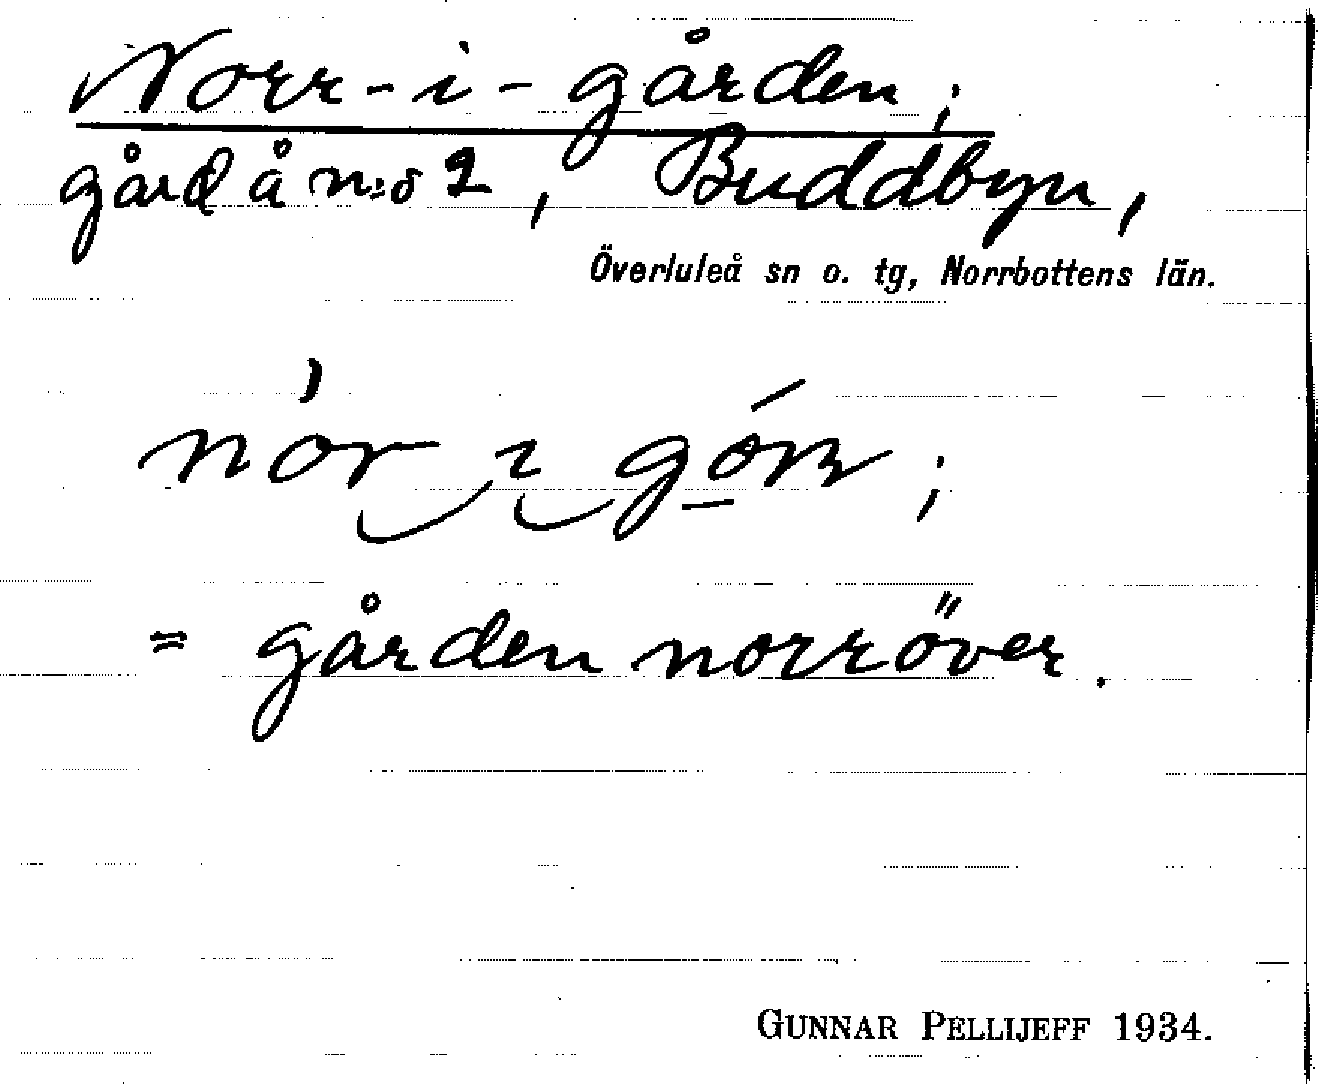 Norr-i-gården;
gård å n:o 2, Buddbyn,
Överluleå sn o. tg, Norrbottens län.
nór i
= gården norröver.
GUNNAR PELLIJEFF 1934.